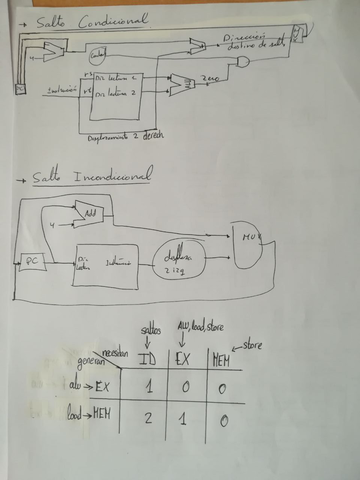 → Salto Condicional
Dirección
destino de salto
4
Control
Zero
Instrucción
Dir lectura 1
Dir lectura 2
Desplazamiento 2 derech
→ Salto Incondicional
Add
4
MUX
PC
Dir
lectura
Instrucción
2 izq
saltos
ALU, load, store
necesitan
ID
EX
MEM
store
generan
alu → EX
1
0
0
load → MEM
2
1
0